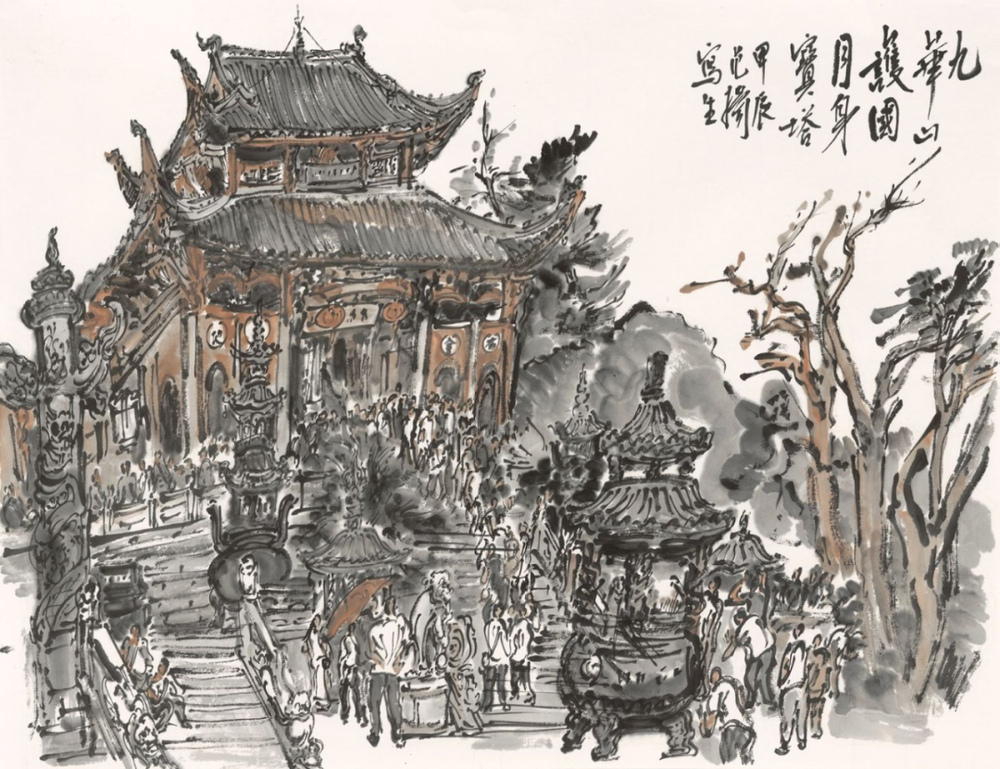 九華山
護國
月身
寶塔
甲辰
寫生